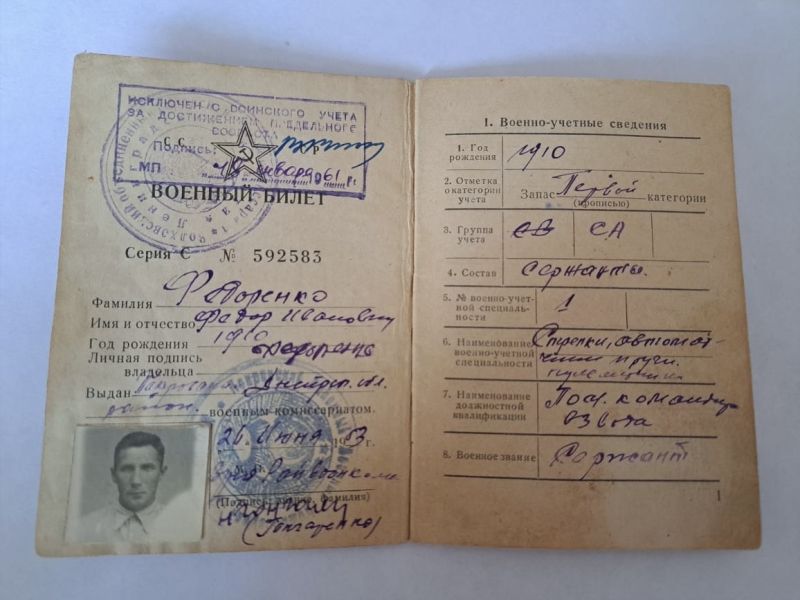 ИСКЛЮЧЕН С ВОИНСКОГО УЧЕТА
ЗА ДОСТИЖЕНИЕМ ПРЕДЕЛЬНОГО
ВОЗРАСТА
Подпись
МП января 1961 г.
ВОЕННЫЙ БИЛЕТ
Серия С № 592583
Фамилия Федоренко
Имя и отчество Федор Иванович
Год рождения 1910
Личная подпись
владельца
Выдан Днепр. обл.
район. военным комиссариатом.
26 Июня 1953 г.
Райвоенкома
(Подпись, фамилия)
(Гончаренко)
I. Военно-учетные сведения
1. Год рождения 1910
2. Отметка о категории учета Запас Первой категории
(прописью)
3. Группа учета СА
4. Состав сержанты.
5. № военно-учетной специальности 1
6. Наименование военно-учетной специальности Стрелки, автоматчики и ручн. пулеметчики
7. Наименование должностной квалификации Пом. командира взвода
8. Военное звание Сержант
1